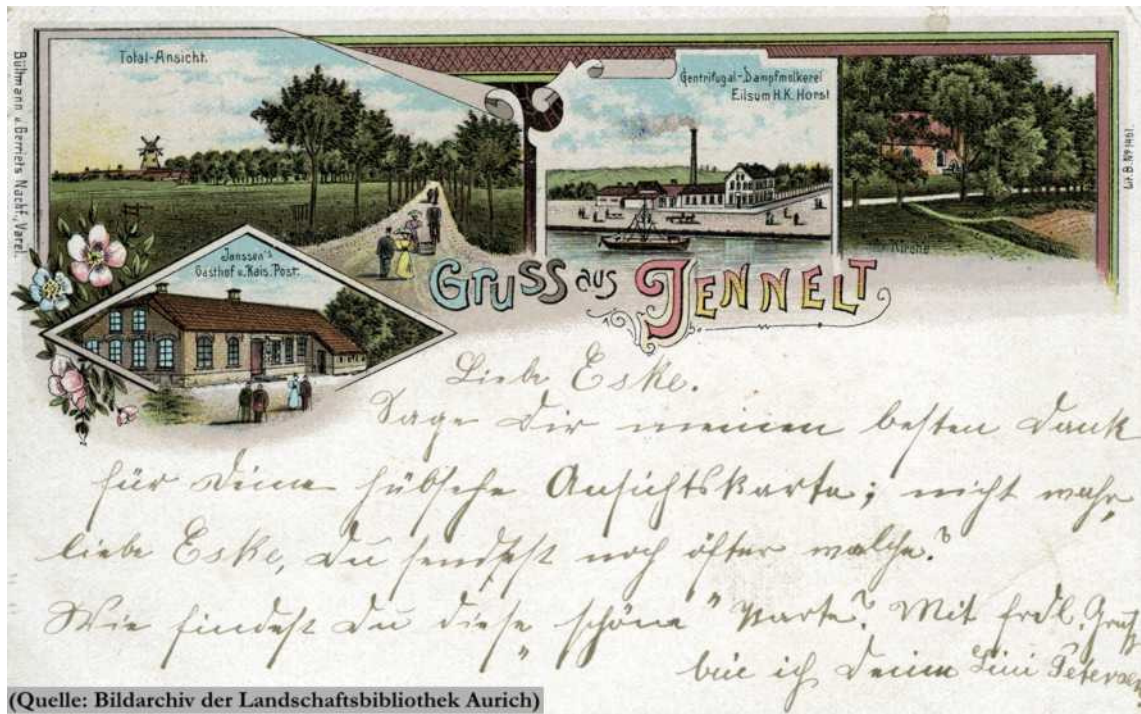 Total-Ansicht.
Centrifugal-Dampfmolkerei
Eilsum H.K. Horst
Kirche
Janssen's
Gasthof u. Kais. Post.
Bültmann u. Gerriets Nachf., Varel.
Lit. B. No 1461.
Gruss aus Jennelt
Liebe Eske.
Sage Dir meinen besten Dank
für Deine hübsche Ansichtskarte; nicht wahr,
liebe Eske, Du sendest noch öfter welche?
Wie findest Du diese „schöne" Karte? Mit frdl. Gruß
bin ich Deine Lini Petersen
(Quelle: Bildarchiv der Landschaftsbibliothek Aurich)